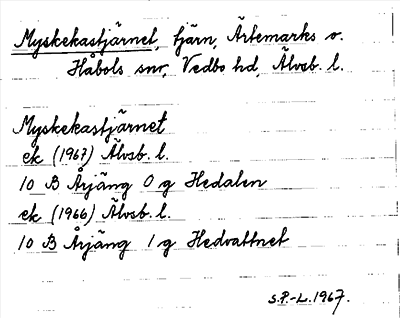 Myskekastjärnet, tjärn, Ärtemarks o.
Håbols snr, Vedbo hd, Älvsb. l.
Myskekastjärnet
ek (1967) Älvsb. l.
10 B Årjäng 0 g Hedalen
ek (1966) Älvsb. l.
10 B Årjäng 1 g Hedvattnet
S.P.-L. 1967.